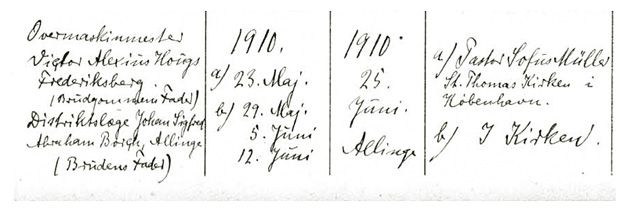 Overmaskinmester
Victor Alexius Hougs
Frederiksberg
(Brudgommens Fader)
Distriktslæge Johan Sigfred
Abraham Borch, Allinge
(Brudens Fader)
1910.
a) 23. Maj.
b) 29. Maj.
5. Juni
12. Juni
1910.
25.
Juni.
Allinge
a) Pastor Sofus Müller
St. Thomas Kirken i
København.
b) I Kirken.